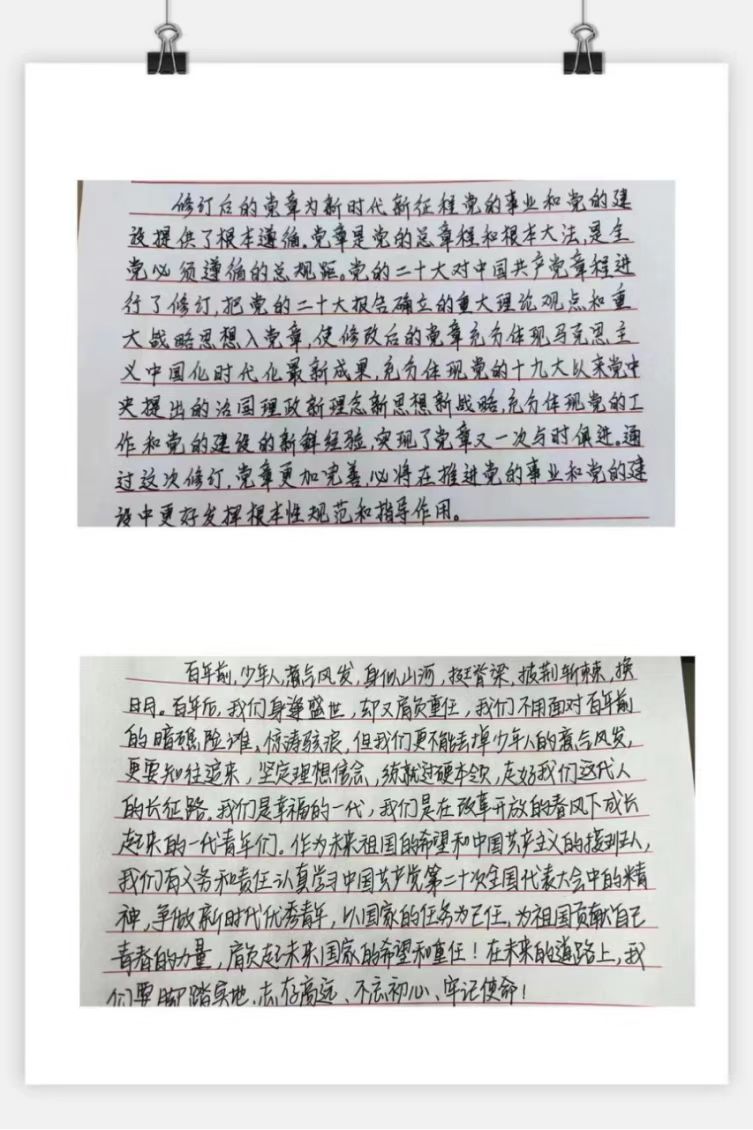 修订后的党章为新时代新征程党的事业和党的建
设提供了根本遵循。党章是党的总章程和根本大法,是全
党必须遵循的总规距。党的二十大对中国共产党章程进
行了修订,把党的二十大报告确立的重大理论观点和重
大战略思想入党章,使修改后的党章充分体现马克思主
义中国化时代化最新成果,充分体现党的十九大以来党中
央提出的治国理政新理念新思想新战略,充分体现党的工
作和党的建设的新鲜经验,实现了党章又一次与时俱进。通
过这次修订,党章更加完善,必将在推进党的事业和党的建
设中更好发挥根本性规范和指导作用。
百年前,少年人意气风发,身似山河,挺脊梁,披荆斩棘,换
日月。百年后,我们身逢盛世,却又肩负重任,我们不用面对百年前
的暗礁险滩,惊涛骇浪,但我们更不能丢掉少年人的意气风发,
更要知往鉴来,坚定理想信念,练就过硬本领,走好我们这代人
的长征路。我们是幸福的一代,我们是在改革开放的春风下成长
起来的一代青年们。作为未来祖国的希望和中国共产主义的接班人,
我们有义务和责任认真学习中国共产党第二十次全国代表大会中的精
神,争做新时代优秀青年,以国家的任务为己任,为祖国贡献自己
青春的力量,肩负起未来国家的希望和重任!在未来的道路上,我
们要脚踏实地、志存高远、不忘初心、牢记使命!